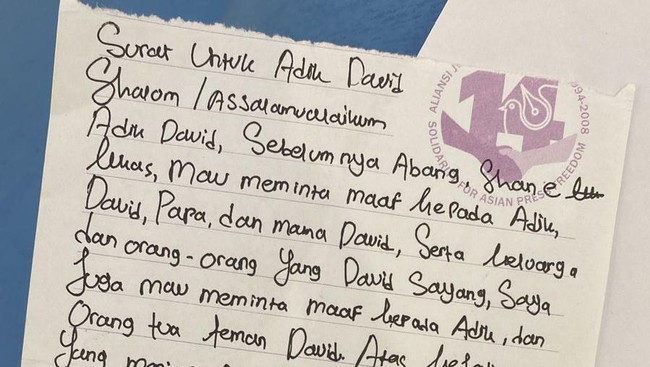 Surat Untuk Adik David
Shalom / Assalamualaikum
Adik David, Sebelumnya Abang, Shane
lukas, mau meminta maaf kepada Adik,
David, Papa, dan mama David, Serta keluarga
dan orang-orang yang David Sayang, Saya
Juga mau meminta maaf kepada Adik, dan
Orang tua teman David. Atas
Yang
ALIANSI J
1994-2008
SOLIDARI FOR ASIAN PRESS FREEDOM
14